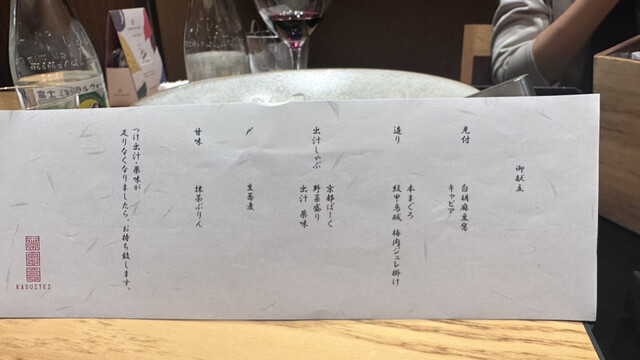 御献立
先付
白胡麻豆腐
キャビア
造り
本まぐろ
紋甲烏賊 梅肉ジュレ掛け
出汁しゃぶ
京都ぽーく
野菜盛り
出汁 薬味
〆
生蕎麦
甘味
抹茶ぷりん
つけ出汁・薬味が
足りなくなりましたら、お持ち致します。
KASUITEI
富士ミネラルウォーター